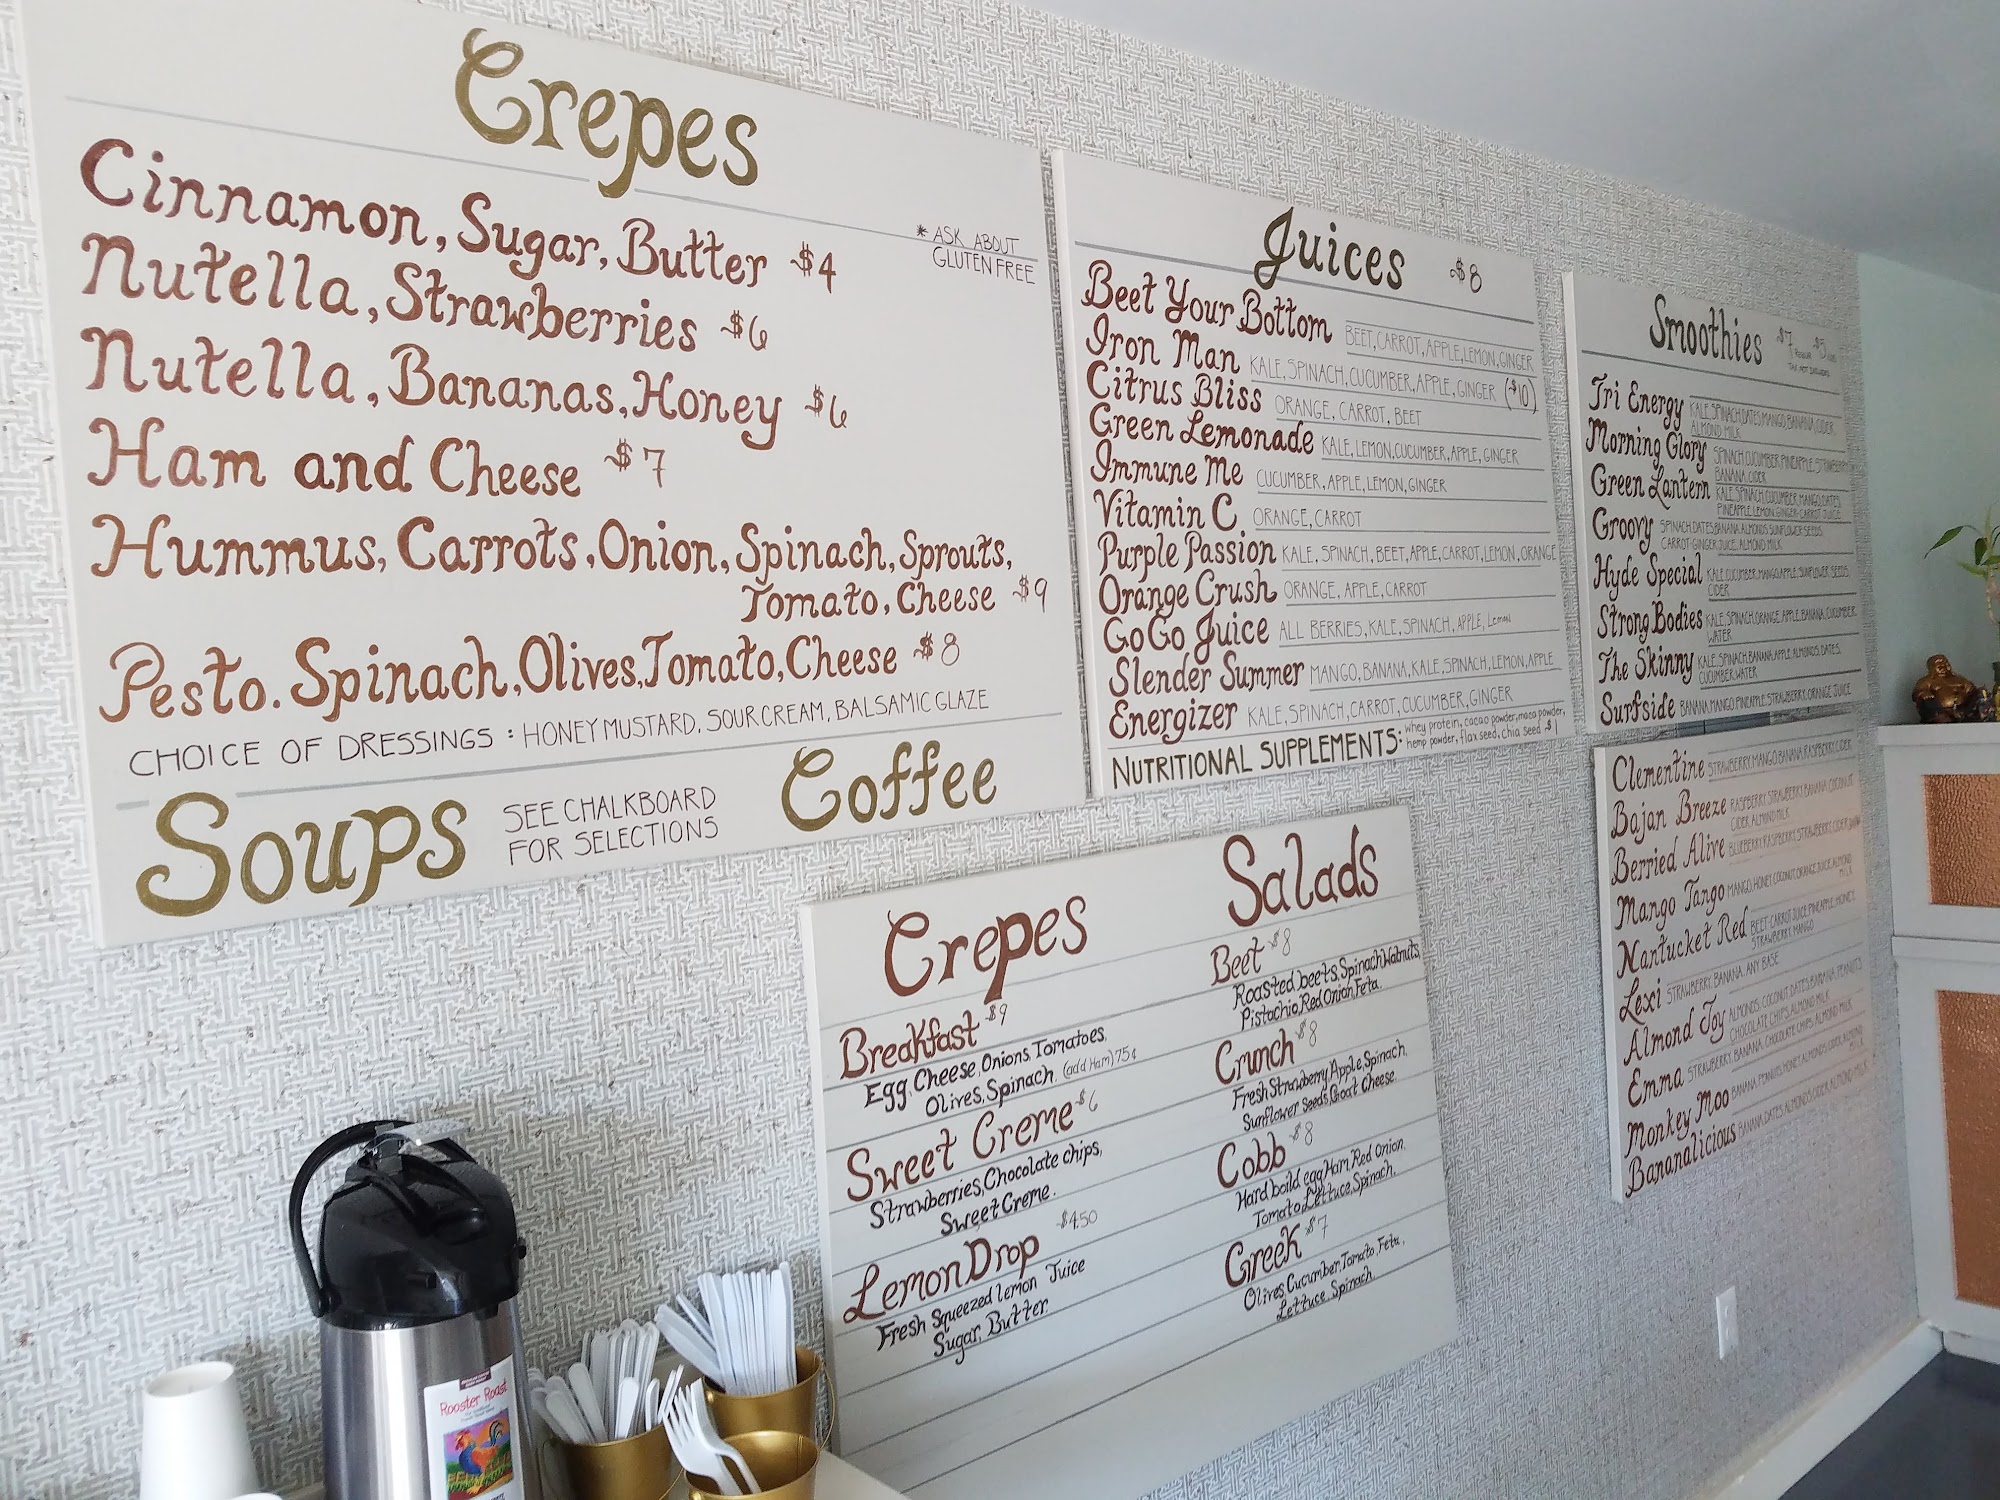 Crepes
* ASK ABOUT
GLUTEN FREE
Cinnamon, Sugar, Butter $4
Nutella, Strawberries $6
Nutella, Bananas, Honey $6
Ham and Cheese $7
Hummus, Carrots, Onion, Spinach, Sprouts,
Tomato, Cheese $9
Pesto. Spinach, Olives, Tomato, Cheese $8
CHOICE OF DRESSINGS : HONEY MUSTARD, SOUR CREAM, BALSAMIC GLAZE
Soups SEE CHALKBOARD
FOR SELECTIONS
Coffee
Juices $8
Beet Your Bottom BEET, CARROT, APPLE, LEMON, GINGER
Iron Man KALE, SPINACH, CUCUMBER, APPLE, GINGER ($10)
Citrus Bliss ORANGE, CARROT, BEET
Green Lemonade KALE, LEMON, CUCUMBER, APPLE, GINGER
Immune Me CUCUMBER, APPLE, LEMON, GINGER
Vitamin C ORANGE, CARROT
Purple Passion KALE, SPINACH, BEET, APPLE, CARROT, LEMON, ORANGE
Orange Crush ORANGE, APPLE, CARROT
GoGo Juice ALL BERRIES, KALE, SPINACH, APPLE, Lemon
Slender Summer MANGO, BANANA, KALE, SPINACH, LEMON, APPLE
Energizer KALE, SPINACH, CARROT, CUCUMBER, GINGER
NUTRITIONAL SUPPLEMENTS: whey protein, cacao powder, maca powder,
hemp powder, flax seed, chia seed $1
Smoothies $7 REGULAR $5
Tri Energy KALE, SPINACH, DATES, MANGO, BANANA, CIDER,
ALMOND MILK
Morning Glory SPINACH, CUCUMBER, PINEAPPLE, STRAWBERRY
BANANA, CIDER
Green Lantern KALE, SPINACH, CUCUMBER, MANGO, DATES,
PINEAPPLE, LEMON, GINGER-CARROT JUICE
Groovy SPINACH, DATES, BANANA, ALMONDS, SUNFLOWER SEEDS,
CARROT-GINGER JUICE, ALMOND MILK
Hyde Special KALE, CUCUMBER, MANGO, APPLE, SUNFLOWER SEEDS,
CIDER
Strong Bodies KALE, SPINACH, ORANGE, APPLE, BANANA, CUCUMBER
WATER
The Skinny KALE, SPINACH, BANANA, APPLE, ALMONDS, DATES,
CUCUMBER, WATER
Surfside BANANA, MANGO, PINEAPPLE, STRAWBERRY, ORANGE JUICE
Clementine STRAWBERRY, MANGO, BANANA, RASPBERRY, CIDER
Bajan Breeze RASPBERRY, STRAWBERRY, BANANA, COCONUT
CIDER, ALMOND MILK
Berried Alive BLUEBERRY, RASPBERRY, STRAWBERRY, CIDER
Mango Tango MANGO, HONEY, COCONUT, ORANGE JUICE, ALMOND
MILK
Nantucket Red BEET-CARROT JUICE, PINEAPPLE, HONEY,
STRAWBERRY, MANGO
Lexi STRAWBERRY, BANANA, ANY BASE
Almond Joy ALMONDS, COCONUT, DATES, BANANA, PEANUTS
CHOCOLATE CHIPS, ALMOND MILK
Emma STRAWBERRY, BANANA, CHOCOLATE CHIPS, ALMOND MILK
Monkey Moo BANANA, PEANUTS, HONEY, ALMONDS, CIDER, ALMOND
MILK
Bananalicious BANANA, DATES, ALMONDS, CIDER, ALMOND MILK
Crepes
Breakfast $9
Egg, Cheese, Onions, Tomatoes,
Olives, Spinach. (add Ham) 75¢
Sweet Creme $6
Strawberries, Chocolate chips,
Sweet Creme.
Lemon Drop $4.50
Fresh Squeezed lemon Juice
Sugar, Butter
Salads
Beet $8
Roasted beets, Spinach Walnuts,
Pistachio, Red Onion, Feta.
Crunch $8
Fresh Strawberry, Apple, Spinach,
Sunflower Seeds, Goat Cheese.
Cobb $8
Hard boild egg, Ham, Red Onion,
Tomato, Lettuce, Spinach.
Greek $7
Olives, Cucumber, Tomato, Feta,
Lettuce, Spinach.
Rooster Roast